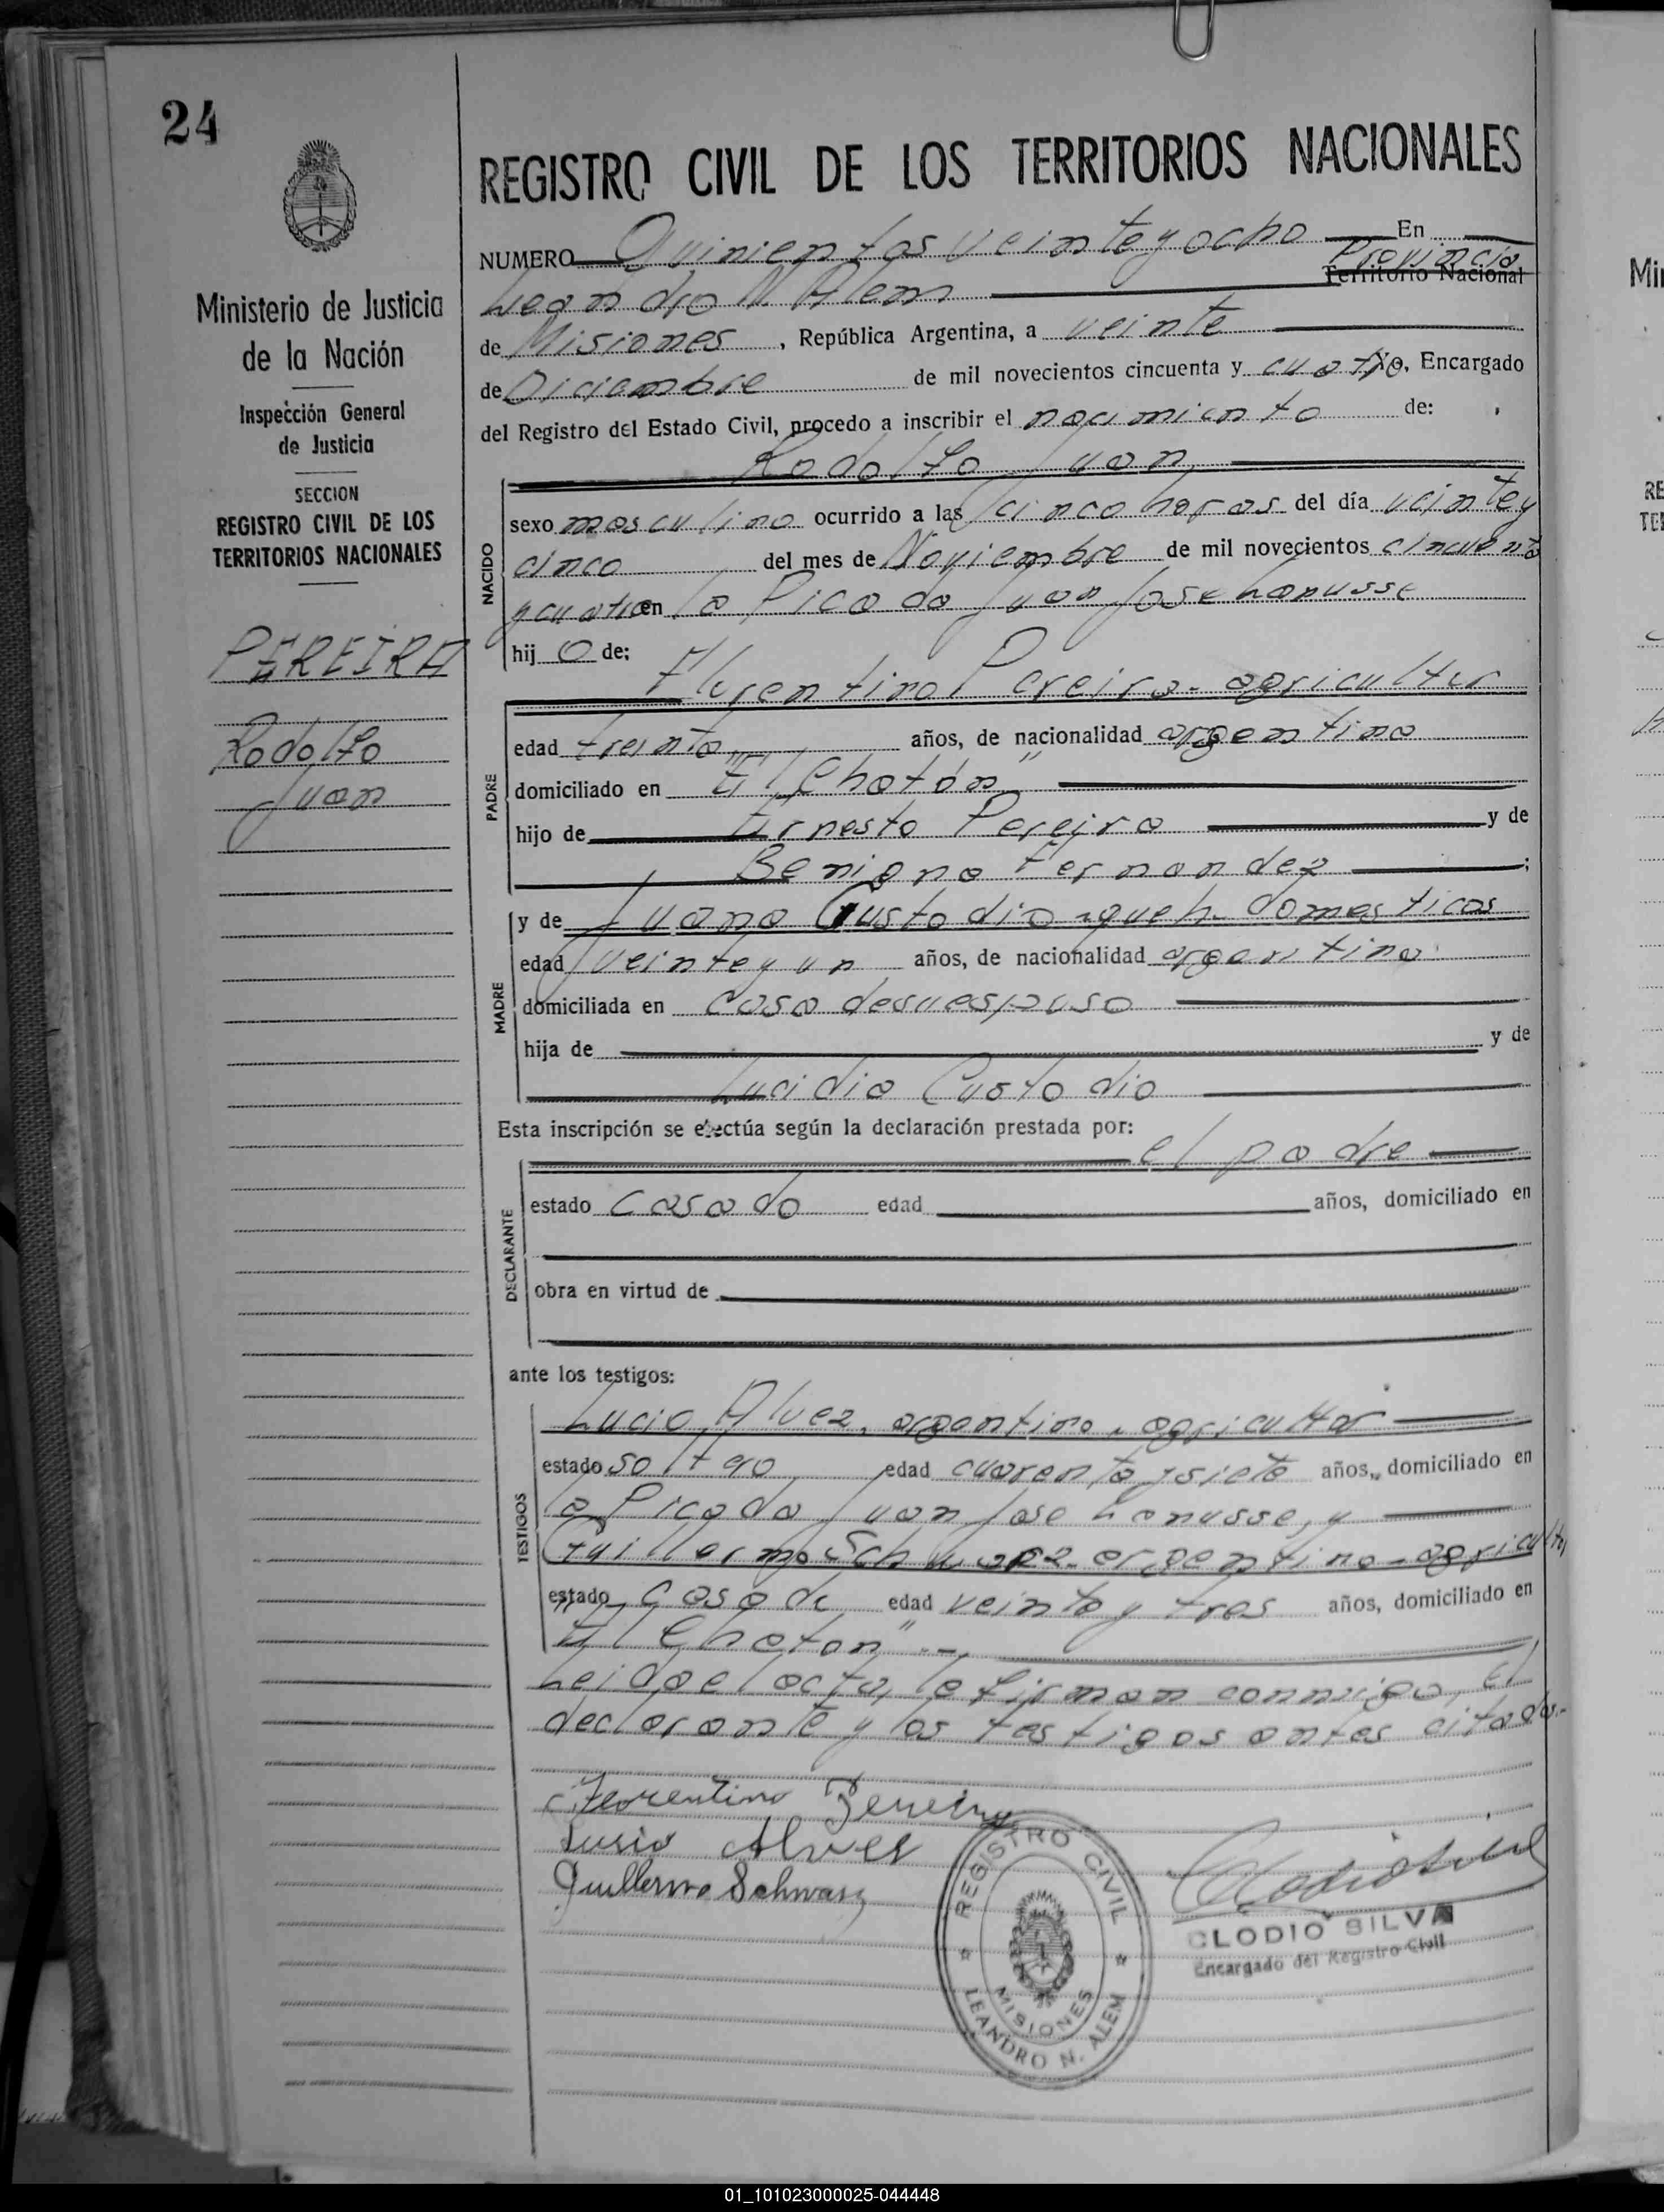 24
REGISTRO CIVIL DE LOS TERRITORIOS NACIONALES
NUMERO Quinientos veinteyocho En
Provincia
Leandro N. Alem Territorio Nacional
de Misiones, República Argentina, a veinte
de Diciembre de mil novecientos cincuenta y cuatro, Encargado
del Registro del Estado Civil, procedo a inscribir el nacimiento de:
Rodolfo Juan,
Ministerio de Justicia
de la Nación
Inspección General
de Justicia
SECCION
REGISTRO CIVIL DE LOS
TERRITORIOS NACIONALES
PEREIRA
Rodolfo
Juan
NACIDO
sexo masculino ocurrido a las cinco horas del día veintey
cinco del mes de Noviembre de mil novecientos cincuenta
y cuatro en la Picada Juan Jose Lanusse
hij o de:
Florentino Pereira- agricultor
PADRE
edad treinta años, de nacionalidad argentina
domiciliado en "El Chatón"
hijo de Ernesto Pereira y de
Benigna Fernandez ;
MADRE
y de Juana Custodio -queh. domesticos
edad veintey un años, de nacionalidad argentina
domiciliada en casa desuesposo
hija de y de
Lucidia Custodio
Esta inscripción se efectúa según la declaración prestada por:
el padre
DECLARANTE
estado casado edad años, domiciliado en
obra en virtud de
ante los testigos:
TESTIGOS
Lucio Alvez, argentino, agricultor
estado soltero edad cuarentaysiete años, domiciliado en
la Picada Juan Jose Lanusse, y
Guillermo Schwarz- argentino-agricultor
estado casado edad veinte y tres años, domiciliado en
"El Chaton".-
Leidaelacta, la firman conmigo, el
declarante y los testigos antes citados.-
Florentino Pereira
Lusio Alves
Guillermo Schwarz
REGISTRO CIVIL
MISIONES
LEANDRO N. ALEM
Clodio Silva
CLODIO SILVA
Encargado del Registro Civil
Mi
RE
TE
01_101023000025-044448